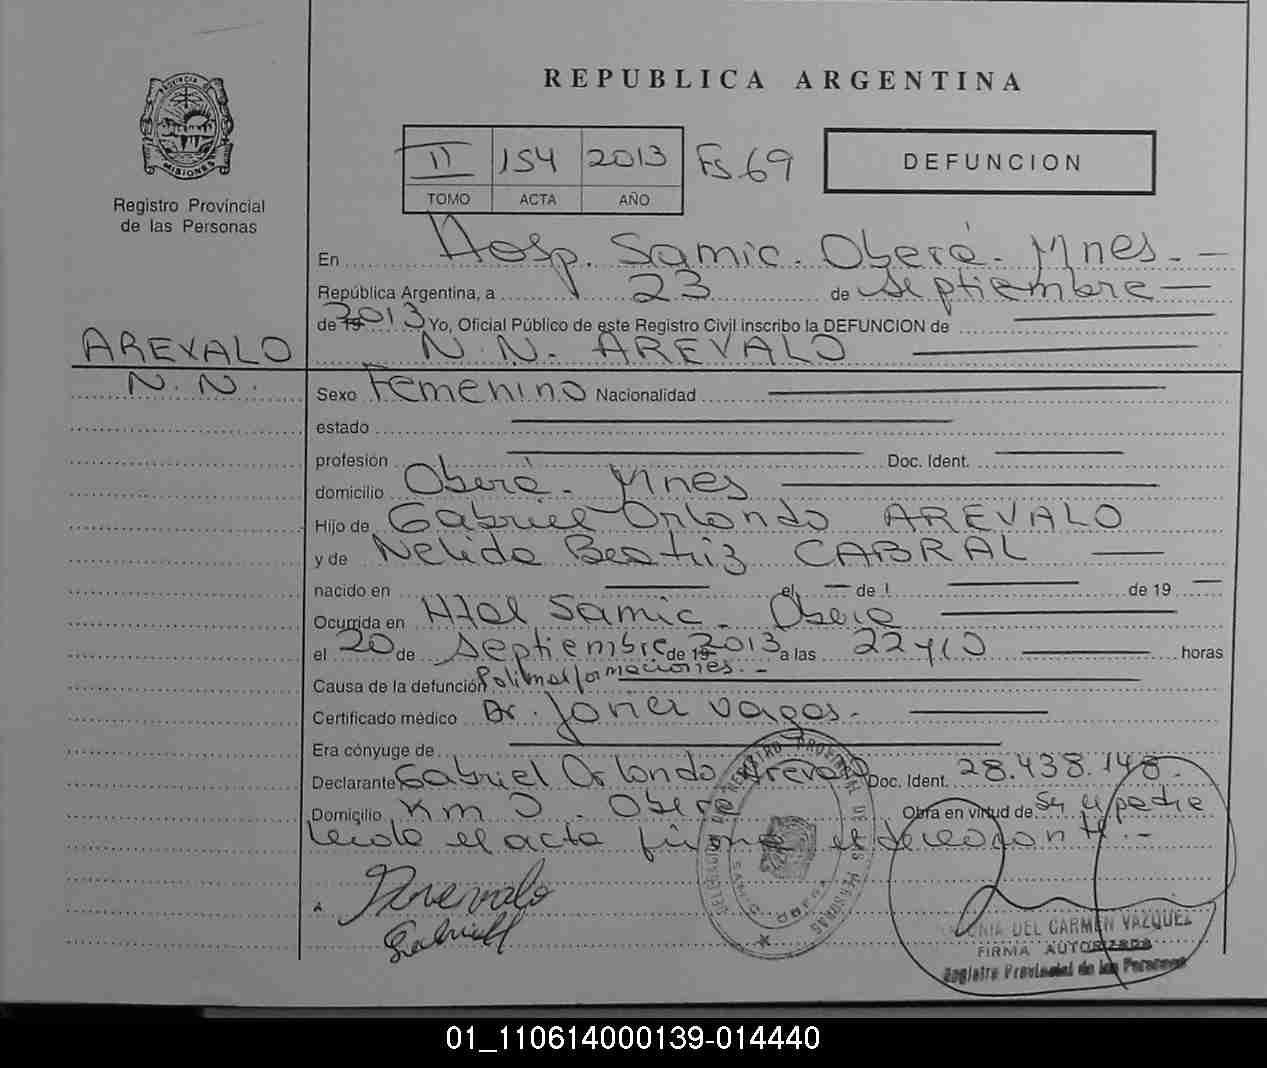 PROVINCIA DE
MISIONES
Registro Provincial
de las Personas
REPUBLICA ARGENTINA
II 154 2013 Fs 69
TOMO ACTA AÑO
DEFUNCION
En Hosp. Samic. Oberá. Mnes. -
República Argentina, a 23 de Septiembre
de 19 2013 Yo, Oficial Público de este Registro Civil inscribo la DEFUNCION de
AREVALO
N. N. AREVALO
N. N.
Sexo Femenino Nacionalidad
estado
profesión Doc. Ident.
domicilio Oberá. Mnes
Hijo de Gabriel Orlando AREVALO
y de Nelida Beatriz CABRAL
nacido en el de de 19
Ocurrida en Htal Samic. Oberá
el 20 de Septiembre de 19 2013 a las 22 y 10 horas
Causa de la defunción Polimalformaciones. -
Certificado médico Dr. Javier Vagos.
Era cónyuge de
Declarante Gabriel Orlando Arevalo Doc. Ident. 28.438.148.
Domicilio Km 0. Oberá Obra en virtud de Ser el padre
Leida el acta firma el declarante. -
Arevalo
Gabriel
DEL CARMEN VAZQUEZ
FIRMA AUTORIZADA
Registro Provincial de las Personas
01_110614000139-014440